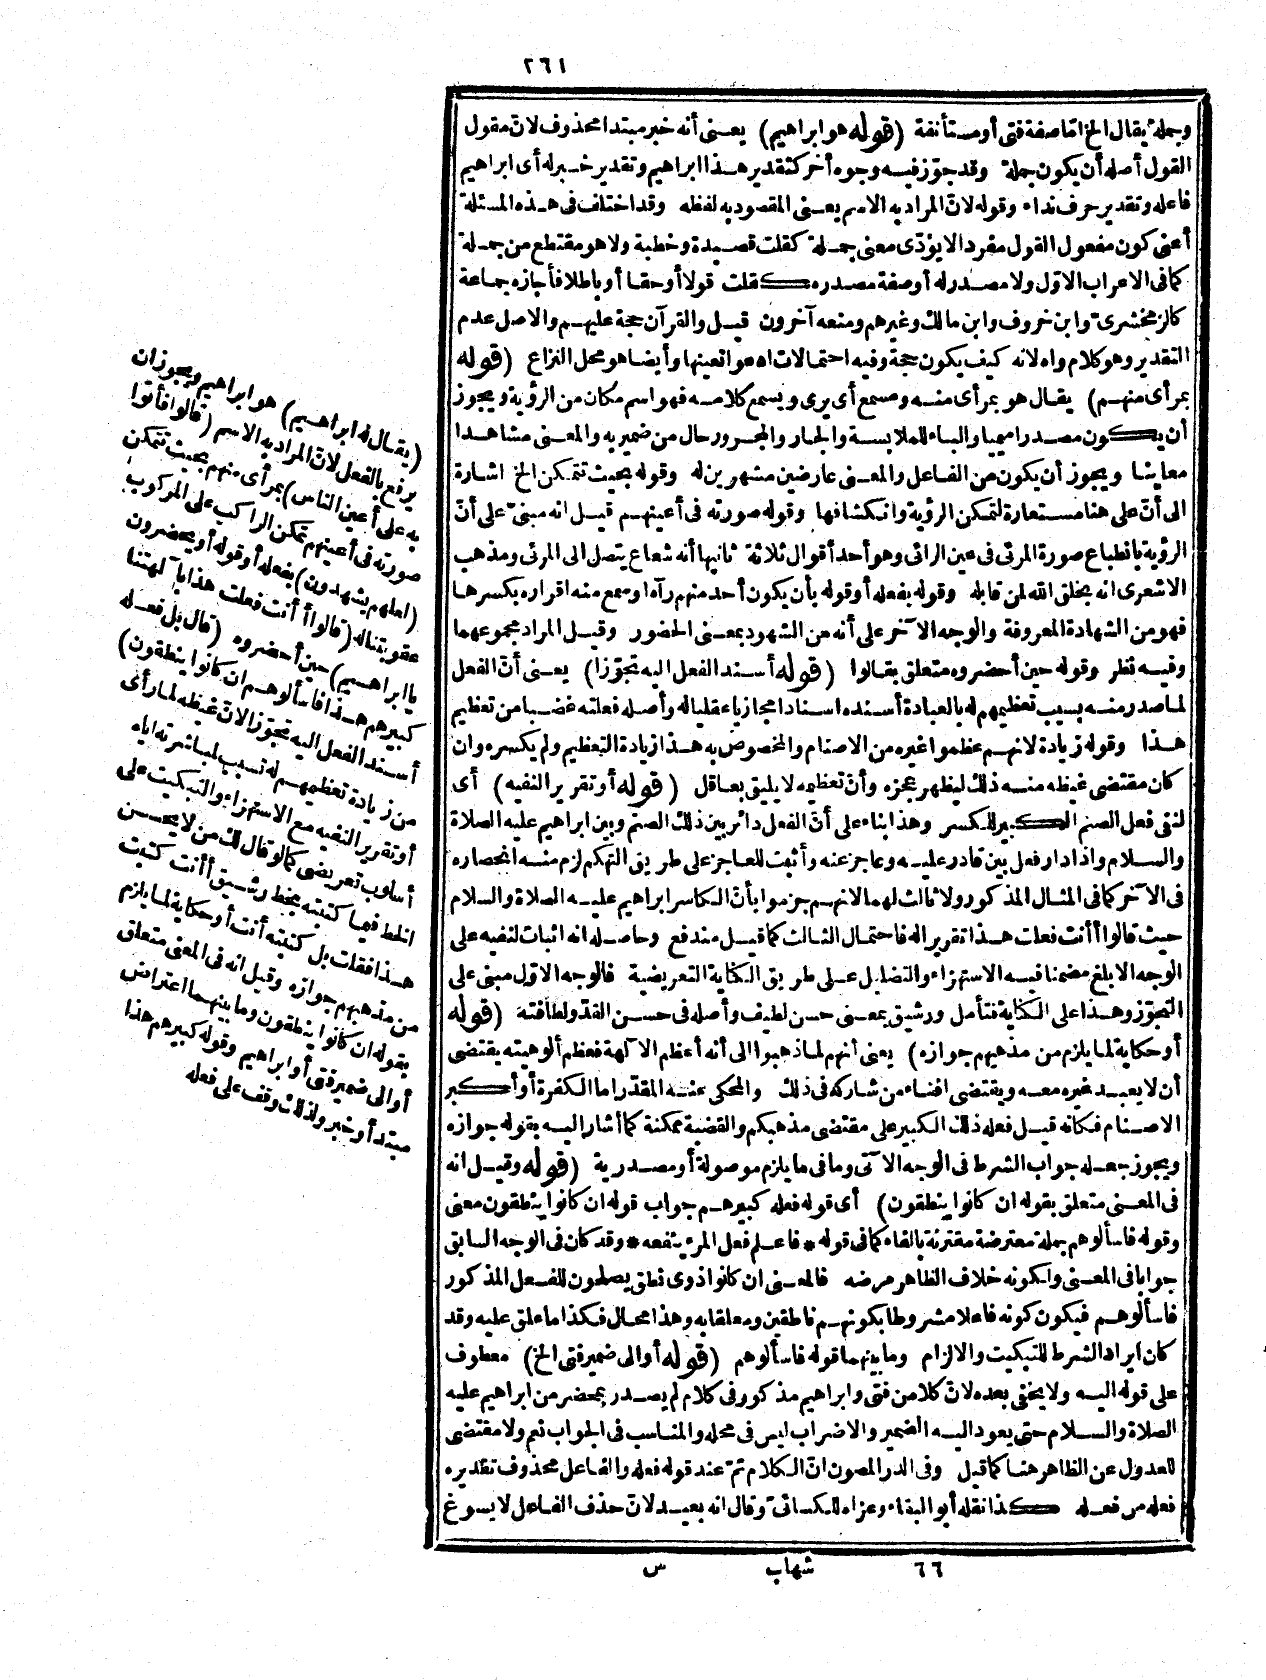 ٢٦١
وجملة يقال الخ امّا صفة فتى أو مستأنفة (قوله هو ابراهيم) يعنى أنه خبر مبتدا محذوف لانّ مقول
القول أصله أن يكون جملة وقد جوّز فيه وجوه أخر كتقدير هذا ابراهيم وتقدير خبر له أى ابراهيم
فاعله وتقدير حرف نداء وقوله لانّ المراد به الاسم يعنى المقصود به لفظه وقد اختلف فى هذه المسئلة
أعنى كون مفعول القول مفردا لا يؤدّى معنى جملة كقلت قصيدة وخطبة ولا هو مقتطع من جملة
كما فى الاعراب الاوّل ولا مصدر له أو صفة مصدره كقلت قولا أو حقا أو باطلا فأجازه جماعة
كالزمخشرىّ وابن خروف وابن مالك وغيرهم ومنعه آخرون قيل والقرآن حجة عليهم والاصل عدم
التقدير وهو كلام واه لانه كيف يكون حجة وفيه احتمالات اه مواقعيتها وأيضا هو محل النزاع (قوله
بمرأى منهم) يقال هو بمرأى منه ومسمع أى يرى ويسمع كلامه فهو اسم مكان من الرؤية ويجوز
أن يكون مصدرا ميميا والباء للملابسة والجار والمجرور حال من ضمير به والمعنى مشاهدا
معاينا ويجوز أن يكون من الفاعل والمعنى عارضين مشهرين له وقوله بحيث تتمكن الخ اشارة
الى أنّ على هنا مستعارة لتمكن الرؤية وانكشافها وقوله صورته فى أعينهم قيل انه مبنىّ على أنّ
الرؤية بانطباع صورة المرئى فى عين الرائى وهو أحد أقوال ثلاثة ثانيها أنه شعاع يتصل الى المرئى ومذهب
الاشعرى انه بخلق الله لمن قابله وقوله بفعله أو قوله بأن يكون أحد منهم رآه أو سمع منه اقراره بكسرها
فهو من الشهادة المعروفة والوجه الآخر على أنه من الشهود بمعنى الحضور وقيل المراد مجموعهما
وفيه نظر وقوله حين أحضروه متعلق بقالوا (قوله أسند الفعل اليه تجوّزا) يعنى أنّ الفعل
لما صدر منه بسبب تعظيمهم له بالعبادة أسنده اسنادا مجازيا عقليا له وأصله فعلته غضبا من تعظيم
هذا وقوله زيادة لانهم عظموا غيره من الاصنام والمخصوص به هذا زيادة التعظيم ولم يكسره وان
كان مقتضى غيظه منه ذلك ليظهر عجزه وأنّ تعظيمه لا يليق بعاقل (قوله أو تقرير النفيه) أى
لنفى فعل الصنم الكبير للكسر وهذا بناء على أنّ الفعل دائر بين ذلك الصنم وبين ابراهيم عليه الصلاة
والسلام واذا دار فعل بين قادر عليه وعاجز عنه وأثبت للعاجز على طريق التهكم لزم منه انحصاره
فى الآخر كما فى المثال المذكور ولا ثالث لهما لانهم جزموا بأنّ الكاسر ابراهيم عليه الصلاة والسلام
حيث قالوا أأنت فعلت هذا تقريرا له فاحتمال الثالث كما قيل مندفع وحاصله انه اثبات لنفيه على
الوجه الابلغ مضمنا فيه الاستهزاء والتضليل على طريق الكناية التعريضية فالوجه الاوّل مبنى على
التجوّز وهذا على الكناية فتأمل ورشيق بمعنى حسن لطيف وأصله فى حسن القدّ ولطافته (قوله
أو حكاية لما يلزم من مذهبهم جوازه) يعنى أنهم لما ذهبوا الى أنه أعظم الآلهة فعظم ألوهيته يقتضى
أن لا يعبد غيره معه ويقتضى افناء من شاركه فى ذلك والمحكى عنه المقدّر اما الكفرة أو أكبر
الاصنام فكأنه قيل فعله ذلك الكبير على مقتضى مذهبكم والقضية ممكنة كما أشار اليه بقوله جوازه
ويجوز جعله جواب الشرط فى الوجه الآتى وما فى ما يلزم موصولة أو مصدرية (قوله وقيل انه
فى المعنى متعلق بقوله ان كانوا ينطقون) أى قوله فعله كبيرهم جواب قوله ان كانوا ينطقون معنى
وقوله فاسألوهم جملة معترضة مقترنة بالفاء كما فى قوله * فاعلم فعلم المرء ينفعه * وقد كان فى الوجه السابق
جوابا فى المعنى ولكونه خلاف الظاهر مرضه فالمعنى ان كانوا ذوى نطق يصلحون للفعل المذكور
فاسألوهم فيكون كونه فاعلا مشروطا بكونهم ناطقين ومعلقا به وهذا محال فكذا ما علق عليه وقد
كان ايراد الشرط للتبكيت والالزام وما بينهما قوله فاسألوهم (قوله أو الى ضمير فتى الخ) معطوف
على قوله اليه ولا يخفى بعده لانّ كلا من فتى وابراهيم مذكور فى كلام لم يصدر بمحضر من ابراهيم عليه
الصلاة والسلام حتى يعود اليه الضمير والاضراب ليس فى محله والمناسب فى الجواب نعم ولا مقتضى
للعدول عن الظاهر هنا كما قيل وفى الدر المصون انّ الكلام تمّ عند قوله فعله والفاعل محذوف تقديره
فعله من فعله كذا نقله أبو البقاء وعزاه للكسائىّ وقال انه بعيد لانّ حذف الفاعل لا يسوغ
(يقال له ابراهيم) هو ابراهيم ويجوز ان
يرفع بالفعل لانّ المراد به الاسم (قالوا فأتوا
به على أعين الناس) بمرأى منهم بحيث تتمكن
صورته فى أعينهم تمكن الراكب على المركوب
(لعلهم يشهدون) بفعله أو قوله أو يحضرون
عقوبتنا له (قالوا أأنت فعلت هذا بآلهتنا
يا ابراهيم) حين أحضروه (قال بل فعله
كبيرهم هذا فاسألوهم ان كانوا ينطقون)
أسند الفعل اليه تجوّزا لانّ غيظه لما رأى
من زيادة تعظيمهم له تسبب لمباشرته اياه
أو تقرير النفيه مع الاستهزاء والتبكيت على
أسلوب تعريضى كما لو قال لك من لا يحسن
الخط فيما كتبته بخط رشيق أأنت كتبت
هذا فقلت بل كتبته أنت أو حكاية لما يلزم
من مذهبهم جوازه وقيل انه فى المعنى متعلق
بقوله ان كانوا ينطقون وما بينهما اعتراض
أو الى ضمير فتى أو ابراهيم وقوله كبيرهم هذا
مبتدأ وخبر ولذلك وقف على فعله
٦٦ شهاب س